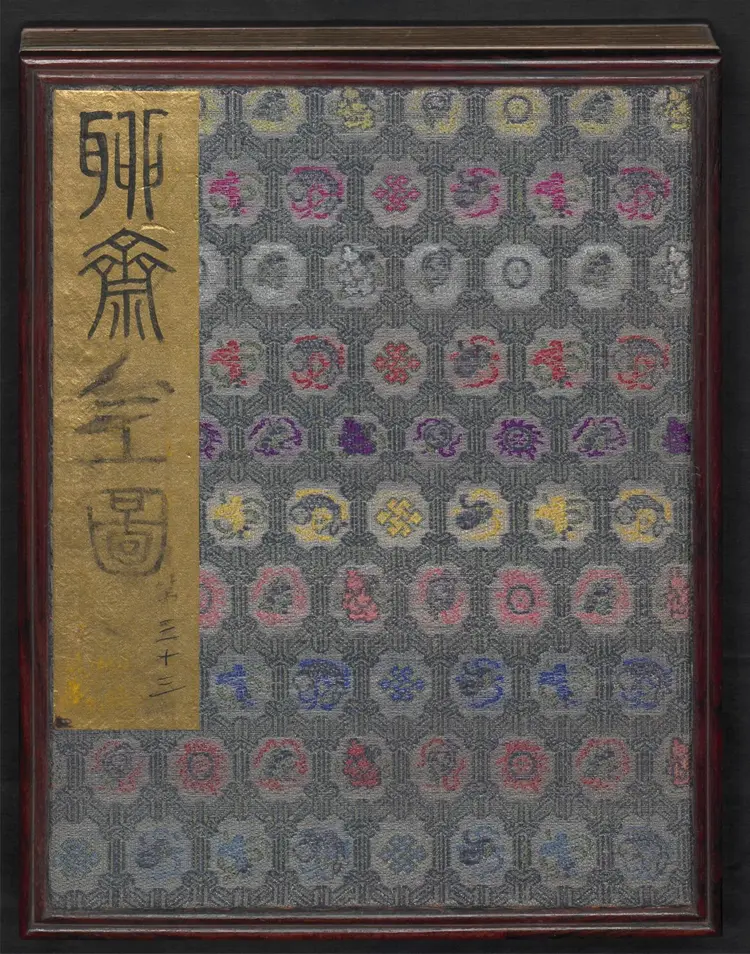 聊齋全圖
三十三